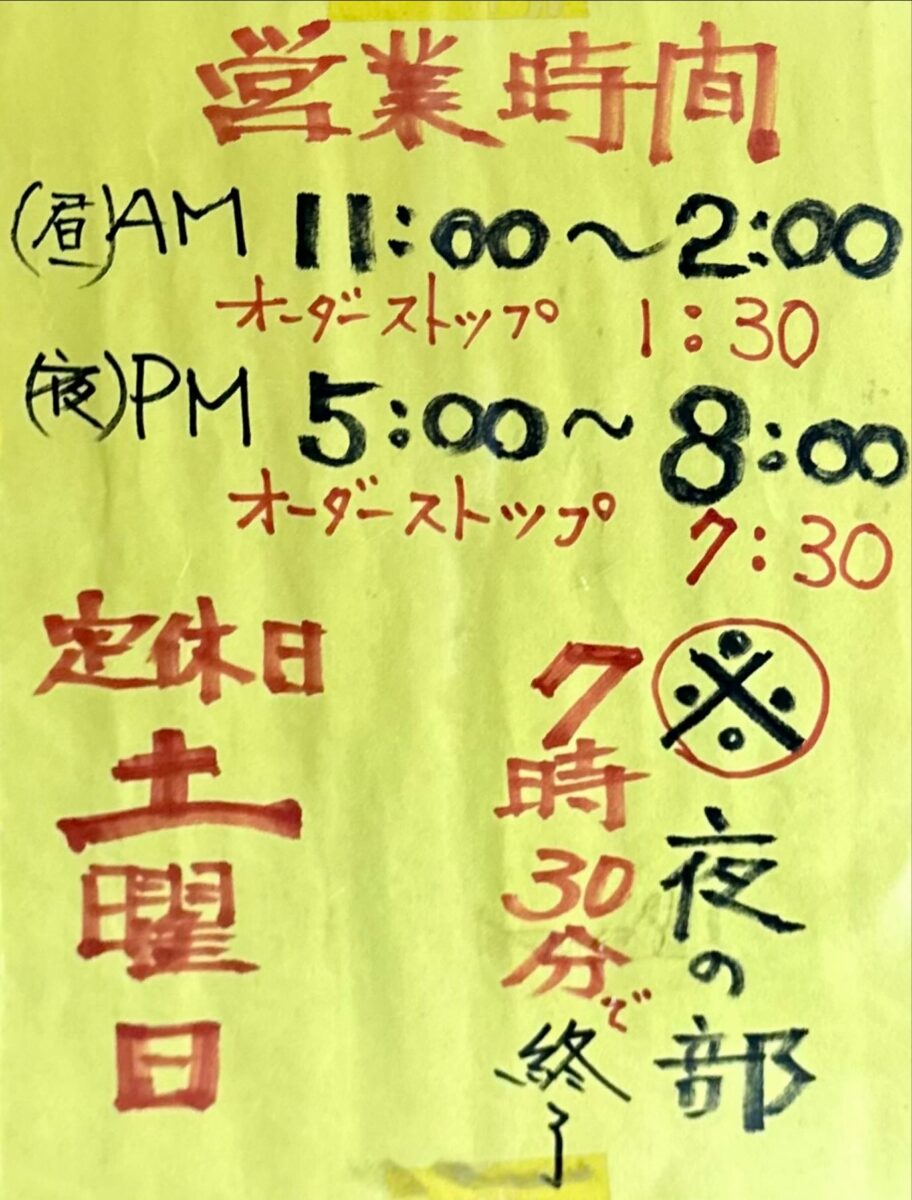 営業時間
(昼)AM 11:00～2:00
オーダーストップ 1:30
(夜)PM 5:00～8:00
オーダーストップ 7:30
定休日
土曜日
※夜の部
7時30分で終了